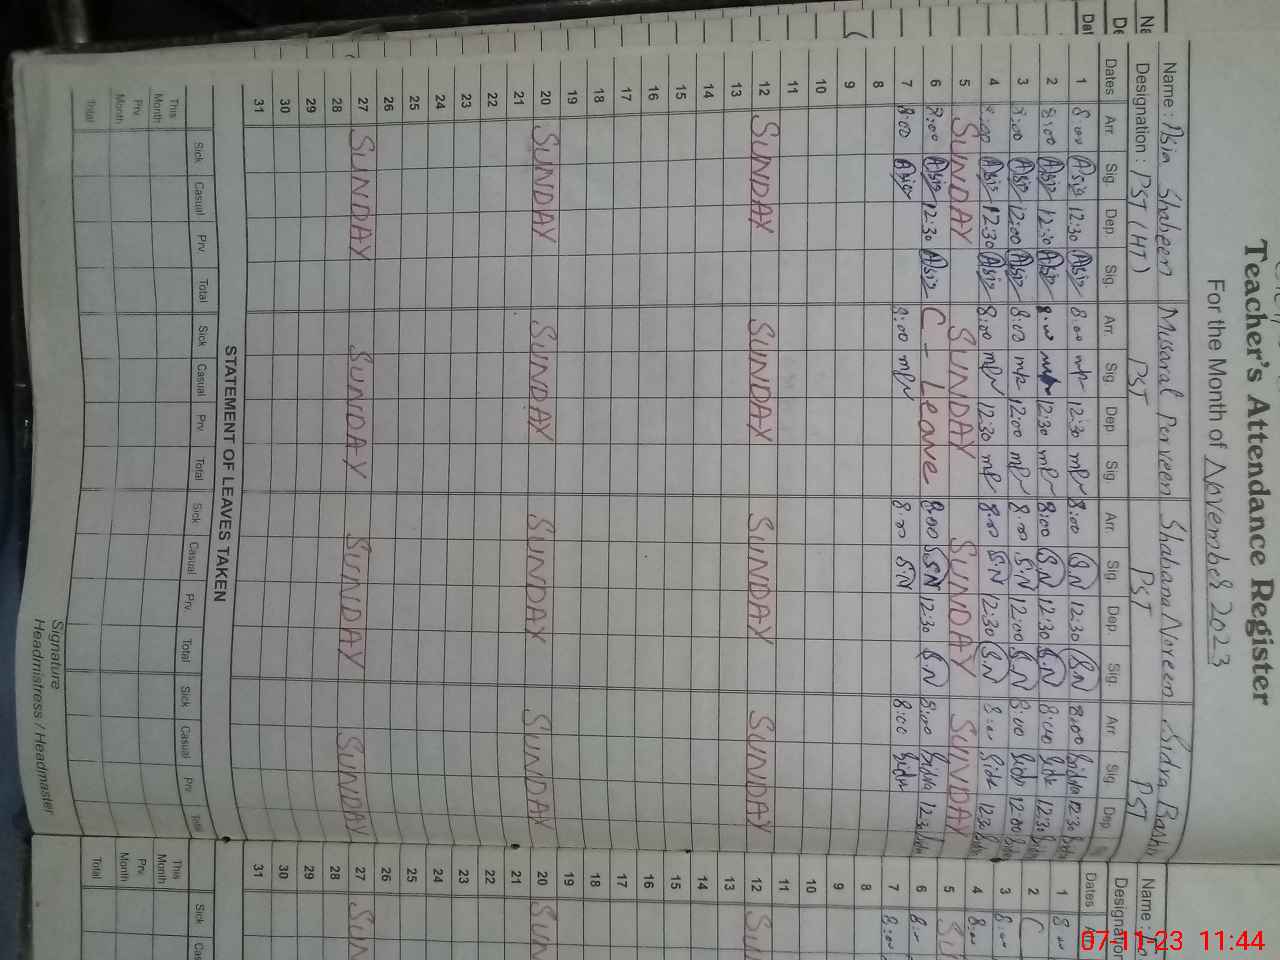 Teacher's Attendance Register
For the Month of November 2023
Name : Asia Shaheen Musarat Perveen Shabana Noreen Sidra Bashir
Designation : PST (HT) PST PST PST
Dates Arr. Sig. Dep. Sig. Arr. Sig. Dep. Sig. Arr. Sig. Dep. Sig. Arr Sig. Dep
1 8:00 Asia 12:30 Asia 8:00 mp 12:30 mp 8:00 S.N 12:30 S.N 8:00 Sidra 12:30
2 8:00 Asia 12:30 Asia 8:00 mp 12:30 mp 8:00 S.N 12:30 S.N 8:00 Sidra 12:30
3 8:00 Asia 12:00 Asia 8:00 mp 12:00 mp 8:00 S.N 12:00 S.N 8:00 Sidra 12:00
4 8:00 Asia 12:30 Asia 8:00 mp 12:30 mp 8:00 S.N 12:30 S.N 8:00 Sidra 12:30
5 SUNDAY SUNDAY SUNDAY SUNDAY
6 8:00 Asia 12:30 Asia C - Leave 8:00 S.N 12:30 S.N 8:00 Sidra 12:30
7 8:00 Asia 8:00 mp 8:00 S.N 8:00 Sidra
8
9
10
11
12 SUNDAY SUNDAY SUNDAY SUNDAY
13
14
15
16
17
18
19
20 SUNDAY SUNDAY SUNDAY SUNDAY
21
22
23
24
25
26
27 SUNDAY SUNDAY SUNDAY SUNDAY
28
29
30
31
STATEMENT OF LEAVES TAKEN
Sick Casual Prv. Total Sick Casual Prv Total Sick Casual Prv. Total Sick Casual Prv. Total
This Month
Prv. Month
Total
Signature
Headmistress / Headmaster
Name :
Designation
Dates
1 8
2
3 8:
4 8:00
5 SU
6 8:
7 8:00
8
9
10
11
12 SU
13
14
15
16
17
18
19
20 SUN
21
22
23
24
25
26
27 SUN
28
29
30
31
Sick
This Month
Prv. Month
Total
07-11-23 11:44